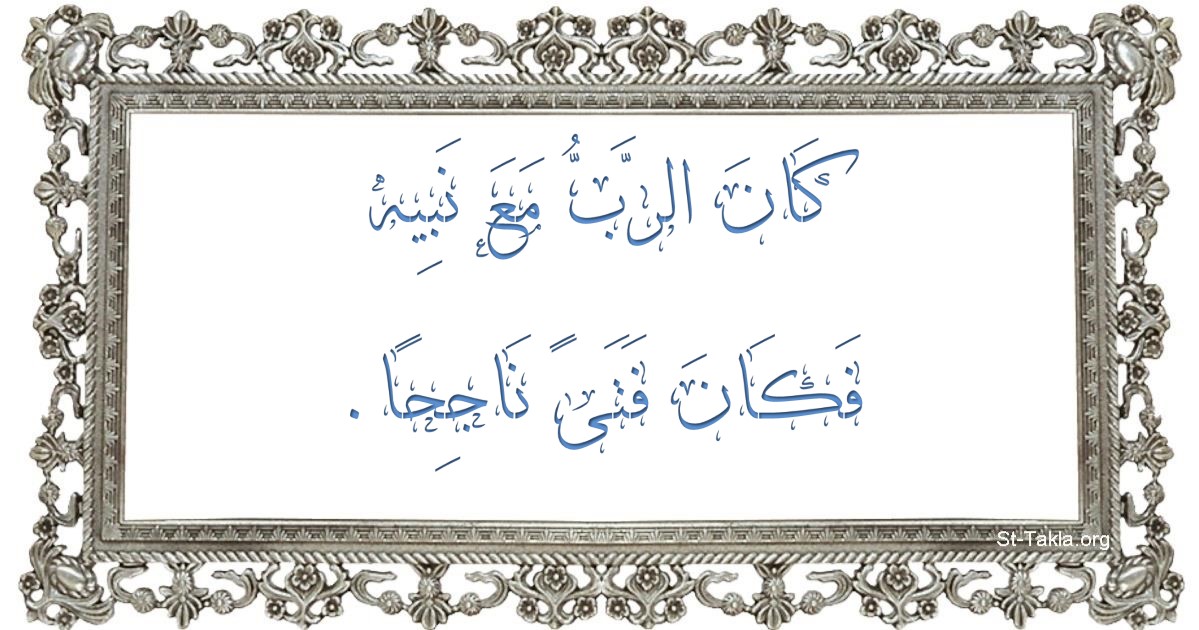 كَانَ الرَّبُّ مَعَ نَبِيهْ
فَكَانَ فَتَىً نَاجِحًا .
St-Takla.org